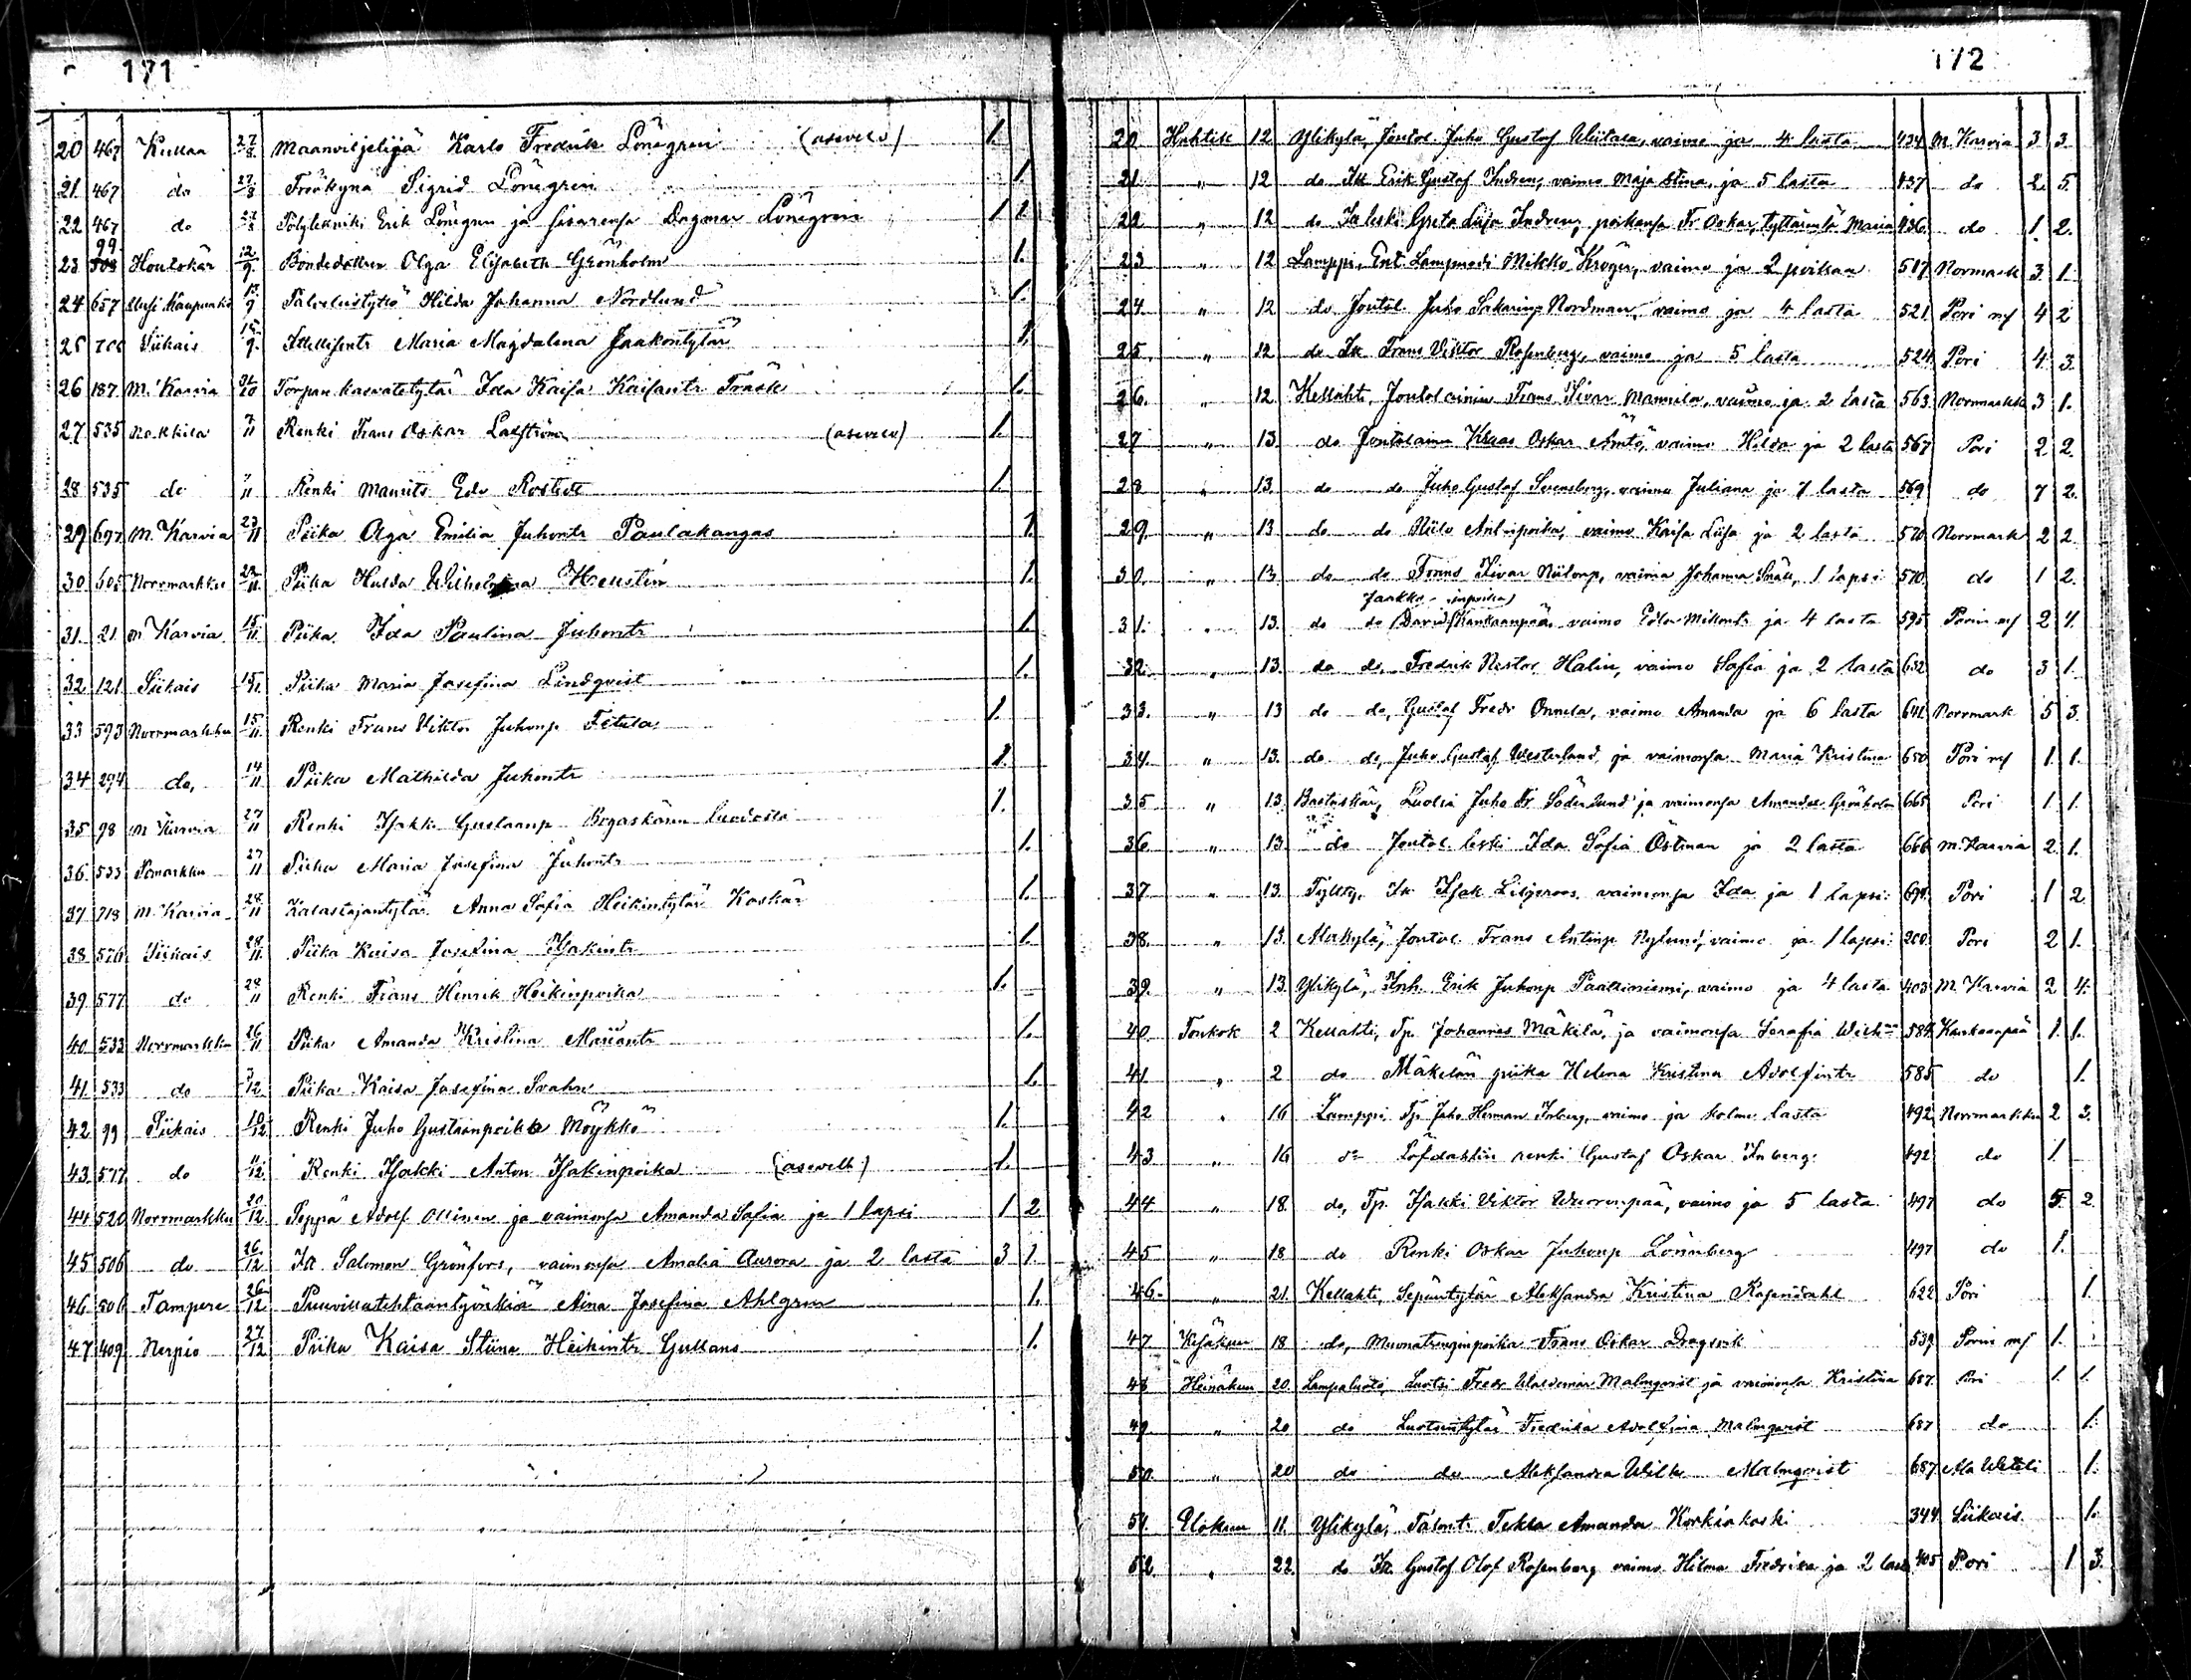 171
20 467 Kullaa 27/8 Maanviljelijä Karlo Fredrik Lönegren (asevelv) 1.
21 467 do 27/8 Fröökynä Sigrid Lönegren 1.
22 467 do 27/8 Polytekniki Erik Lönegren ja sisarensa Dagmar Lönegren 1 1
23 99 Houtskär 12/9 Bondedotter Olga Elisabeth Grönholm 1.
24 657 Uusi Kaupunki 13/9 Palvelustyttö Hilda Johanna Nordlund 1.
25 Siikais 15/9 Itsellisentr Maria Magdalena Jaakontytär 1.
26 187 M. Karvia /10 Torpan kasvatetytär Ida Kaisa Kaisantr Träsk 1.
27 535 Nakkila /11 Renki Frans Oskar Laxström (asevelv) 1.
28 535 do /11 Renki Maurits Edv Rostedt 1.
29 697 M. Karvia 23/11 Piika Olga Emilia Juhontr Paulakangas 1.
30 605 Norrmarkku 22/11 Piika Hulda Wilhelmina Heustin 1.
31. 21 M Karvia 15/11 Piika Ida Paulina Juhontr 1.
32 121 Siikais 15/11 Piika Maria Josefina Lindqvist 1.
33 593 Norrmarkku 15/11 Renki Frans Viktor Juhonp Fetula 1.
34 294 do, 14/11 Piika Mathilda Juhontr 1.
35 98 M Karvia 27/11 Renki Isakki Gustaanp Bogaskärin luodosta 1.
36. 533 Pomarkku 27/11 Piika Maria Josefina Juhontr 1.
37 718 M. Karvia 28/11 Kalastajantytär Anna Sofia Heikintytär Kaskär 1.
38. 576 Siikais 28/11 Piika Kaisa Josefina Isakintr 1.
39. 577 do 28/11 Renki Frans Henrik Heikinpoika 1.
40. 533 Norrmarkku 26/11 Piika Amanda Kristina Mariantr 1.
41. 533 do 3/12 Piika Kaisa Josefina Svahn 1.
42 99 Siikais 10/12 Renki Juho Gustaanpoika Möykkö 1.
43. 577 do 11/12 Renki Isakki Anton Isakinpoika (asevelv) 1.
44 520 Norrmarkku 20/12 Seppä Adolf Ollinen ja vaimonsa Amanda Sofia ja 1 lapsi 1 2
45 506 do 26/12 Itr Salomon Grönfors, vaimonsa Amalia Aurora ja 2 lasta 3 1.
46 506 Tampere 26/12 Puuvillatehtaantyönkiä Aina Josefina Ahlgren 1.
47 409 Nerpio 27/12 Piika Kaisa Stiina Heikintr Gullans 1.
172
20 Huhtik 12 Ylikylä, Joutol. Juho Gustaf Uusitalo, vaimo ja 4 lasta 434 M. Karvia 3 3.
21. " 12 do Itr Erik Gustaf Indren, vaimo Maja Stina, ja 5 lasta 437 do 2. 5.
22 " 12 do Itr leski Greta Liisa Indren, poikansa Fr Oskar, tyttärensä Maria 436. do 1. 2.
23 " 12 Lamppi, Ent. Lampuodi Mikko Kröger, vaimo ja 2 poikaa 517 Normark 3. 1.
24. " 12 do Joutol. Juho Sakarinp Nordman, vaimo ja 4 lasta 521. Pori mf 4 2
25. " 12 do Itr Frans Viktor Rosenberg, vaimo ja 5 lasta 524. Pori 4. 3.
26. " 12 Kellahti, Joutolainen Frans Iivar Mannila, vaimo ja 2 lasta 563. Normarkku 3 1.
27 " 13. do Joutolainen Klaas Oskar Ämtö, vaimo Hilda ja 2 lasta 567 Pori 2 2.
28 " 13. do do Juho Gustaf Svensberg, vaimo Juliana ja 7 lasta 569 do 7 2.
29. " 13 do do Niilo Antinpoika, vaimo Kaisa Liisa ja 2 lasta 570 Norrmark 2 2.
30. " 13 do do Frans Iivar Niilonp, vaimo Johanna Snäll, 1 lapsi 570. do 1 2.
Jaakko inpoika
31. " 13. do do David Kankaanpää, vaimo Edla Mikontr ja 4 lasta 595 Porin mf 2 4.
32. " 13. do do Fredrik Nestor Halin, vaimo Sofia ja 2 lasta 632 do 3 1.
33. " 13 do do, Gustaf Fredr Onnela, vaimo Amanda ja 6 lasta 641 Norrmark 5 3.
34. " 13. do do, Juho Gustaf Westerlund, ja vaimonsa Maria Kristina 650 Pori mf 1. 1.
35 " 13. Bastuskär, Luotsi Juho Fr Söderlund ja vaimonsa Amanda Grönholm 665 Pori 1 1.
36. " 13. do Joutol. leski Ida Sofia Östman ja 2 lasta 666 M. Karvia 2. 1.
37 " 13. Tyltty, Itr Isak Liljeroos vaimonsa Ida ja 1 lapsi 694 Pori 1 2.
38. " 13. Alakylä, Joutol. Frans Antinp Nylund, vaimo ja 1 lapsi 200. Pori 2 1.
39. " 13. Ylikylä, Inh. Erik Juhonp Paattiniemi, vaimo ja 4 lasta 403 M. Karvia 2 4.
40 Toukok 2 Kellahti, Tp. Johannes Mäkilä, ja vaimonsa Serafia Wilh 584 Kankaanpää 1. 1.
41 " 2 do Mäkelän piika Helena Kristina Adolfintr 585 do 1.
42 " 16 Lamppi, Tp. Juho Herman Inberg, vaimo ja kolme lasta 492 Norrmarkku 2 3.
43 " 16 do Löfdahlin renki Gustaf Oskar Inberg. 492 do 1.
44 " 18. do, Tp. Isakki Viktor Wuorenpää, vaimo ja 5 lasta. 497 do 5. 2.
45 " 18 do Renki Oskar Juhonp Lönnberg 497 do 1.
46. " 21. Kellahti, Sepäntytär Aleksandra Kristina Rosendahl 622 Pori 1.
47 Kesäkuu 18 do, Muonatrenginpoika Frans Oskar Dragsvik 539 Porin mf 1.
48 Heinäkuu 20. Lampaluoto, Luotsi Fredr Waldemar Malmqvist ja vaimonsa Kristina 687. Pori 1. 1.
49. " 20 do Luotsintytär Fredrika Adolfina Malmqvist 687 do 1.
50. " 20 do do Aleksandra Wilh. Malmqvist 687 Ala Weteli 1.
51. Elokuu 11. Ylikylä, Talontr Tekla Amanda Korkiakoski 344 Siikais. 1.
52. " 22. do Itr Gustaf Olof Rosenberg vaimo Hilma Fredrika ja 2 lasta 405 Pori 1 3.